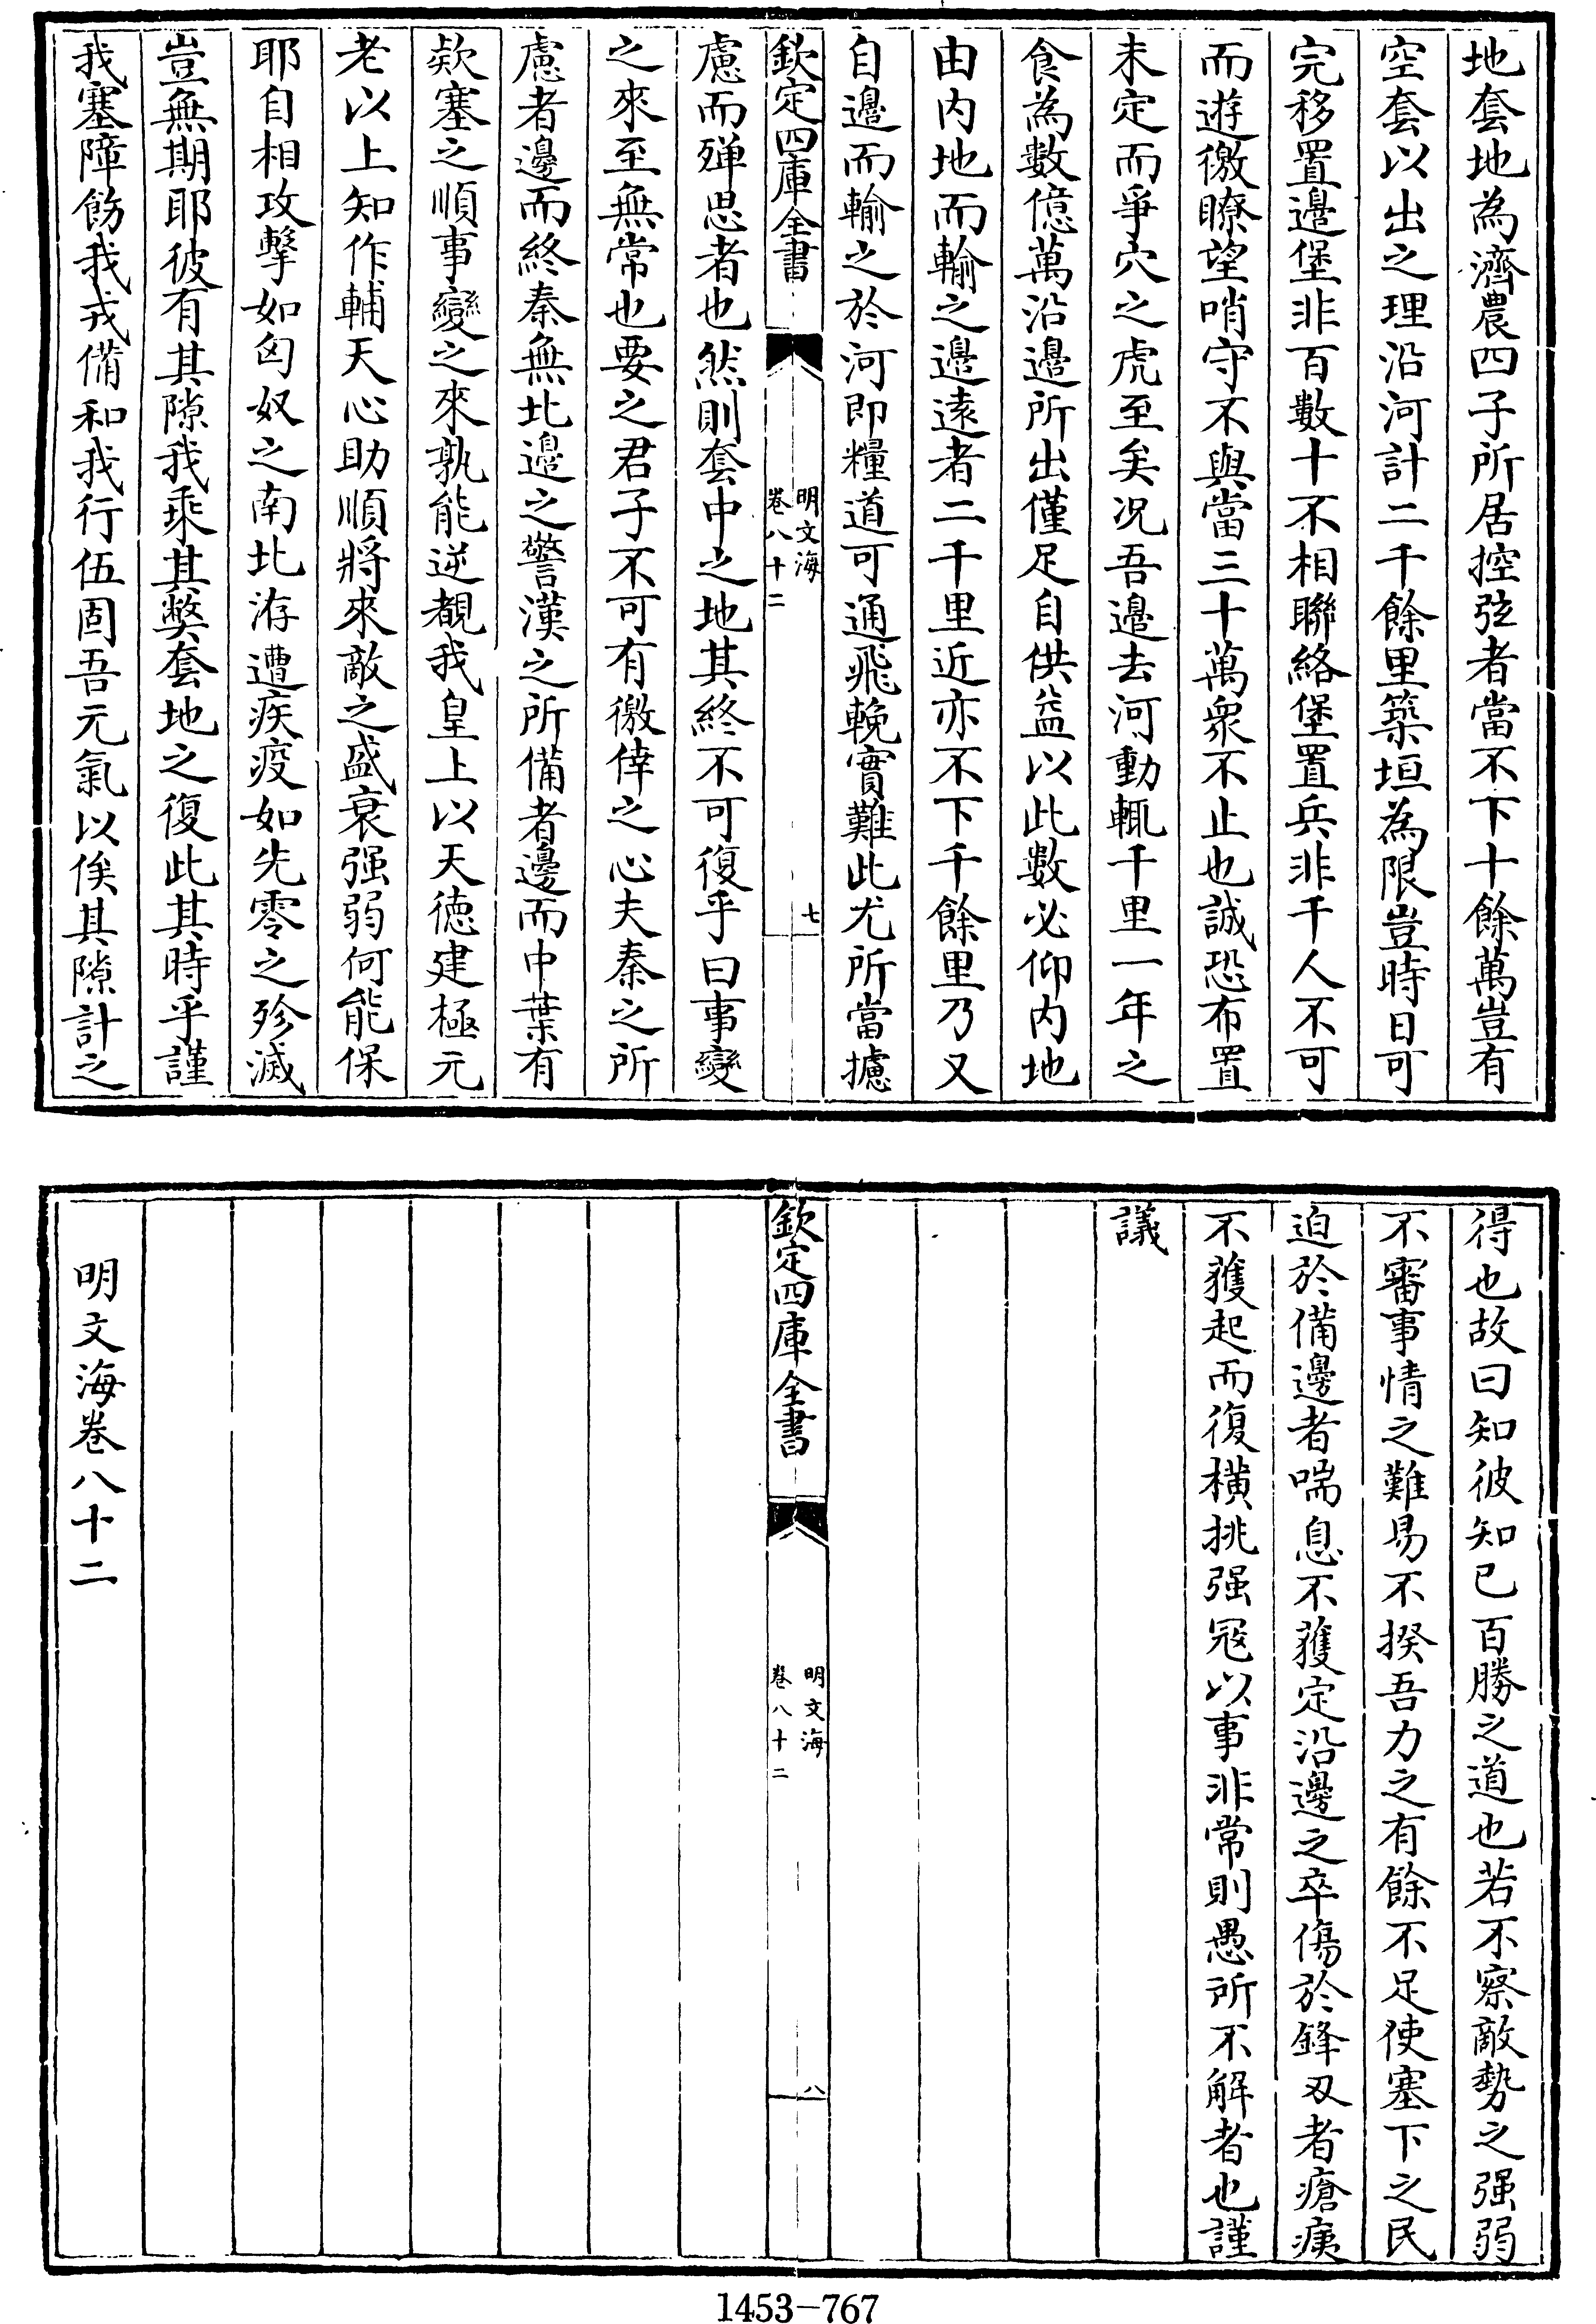 地套地為濟農四子所居控弦者當不下十餘萬豈有
空套以出之理沿河計二千餘里築垣為限豈時日可
完移置邊堡非百數十不相聯絡堡置兵非千人不可
而遊徼瞭望哨守不與當三十萬衆不止也誠恐布置
未定而爭穴之虎至矣况吾邊去河動輒千里一年之
食為數億萬沿邊所出僅足自供益以此數必仰内地
由内地而輸之邊遠者二千里近亦不下千餘里乃又
自邊而輸之於河即糧道可通飛輓實難此尤所當攄
欽定四庫全書
明文海
卷八十二
七
慮而殫思者也然則套中之地其終不可復乎曰事變
之來至無常也要之君子不可有徼倖之心夫秦之所
慮者邊而終秦無北邊之警漢之所備者邊而中葉有
欵塞之順事變之來孰能逆覩我皇上以天德建極元
老以上知作輔天心助順將來敵之盛衰强弱何能保
耶自相攻擊如匈奴之南北洊遭疾疫如先零之殄滅
豈無期耶彼有其隙我乘其獘套地之復此其時乎謹
我塞障飭我戎備和我行伍固吾元氣以俟其隙計之
得也故曰知彼知已百勝之道也若不察敵勢之强弱
不審事情之難易不揆吾力之有餘不足使塞下之民
迫於備邊者喘息不獲定沿邊之卒傷於鋒刃者瘡痍
不獲起而復横挑强冦以事非常則愚所不解者也謹
議
欽定四庫全書
明文海
卷八十二
八
明文海卷八十二
1453-767